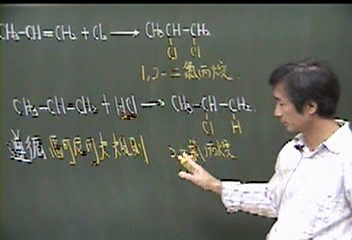 CH₃-CH=CH₂ + Cl₂ → CH₃CH-CH₂
Cl Cl
1,2-二氯丙烷
CH₃-CH=CH₂ + HCl → CH₃-CH-CH₂
Cl H
遵循
2-氯丙烷